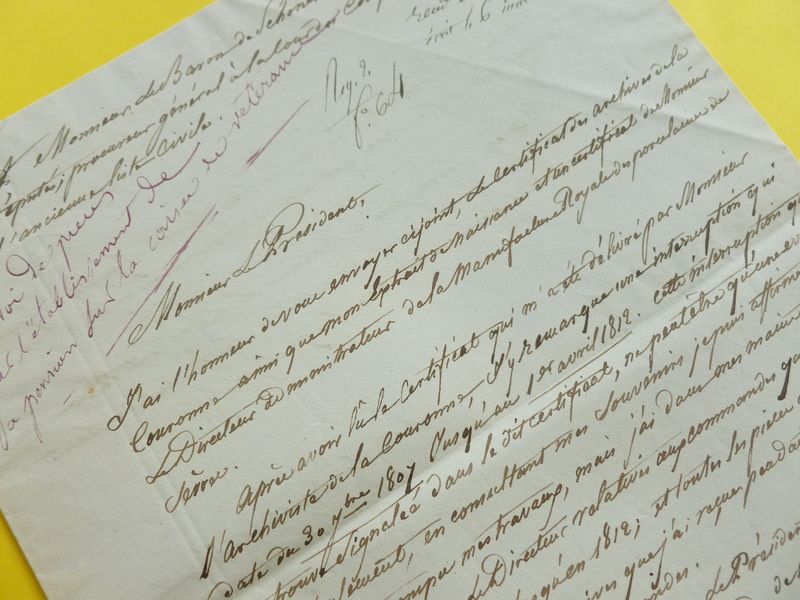 Monsieur Le Baron de Schonen
députés, procureur général à la Cour des Com
l'ancienne liste Civile.
Reg. 2.
fo. 64
envoi de pièces
l'établissement de
sa pension sur la caisse de vétérance
Monsieur Le Président,
J'ai l'honneur de vous envoyer cijoint, Le Certificat des archives de la
Couronne ainsi que mon Extrait de Naissance et un certificat de Monsieur
Le Directeur administrateur de la Manufacture Royale de porcelaine de
Sèvres.
Après avoir lû le Certificat qui m'a été délivré par Monsieur
l'archiviste de la Couronne, j'y remarque une interruption qui
date du 30 9bre 1807 Jusqu'au 1er avril 1812. cette interruption qu
trouve signalée dans le dit certificat, ne peut être qu'une err
en consultant mes souvenirs je puis affirme
mes travaux, mais j'ai dans mes mains
Le Directeur relatives aux commandes qu
jusqu'en 1812; et toutes les pièces
que j'ai reçues pendant
Le Président